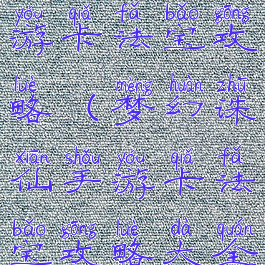 yóu qiǎ fǎ bǎo gōng
游卡法宝攻
lüè mèng huàn zhū
略(梦幻诛
xiān shǒu yóu qiǎ fǎ
仙手游卡法
bǎo gōng lüè dà quán
宝攻略大全